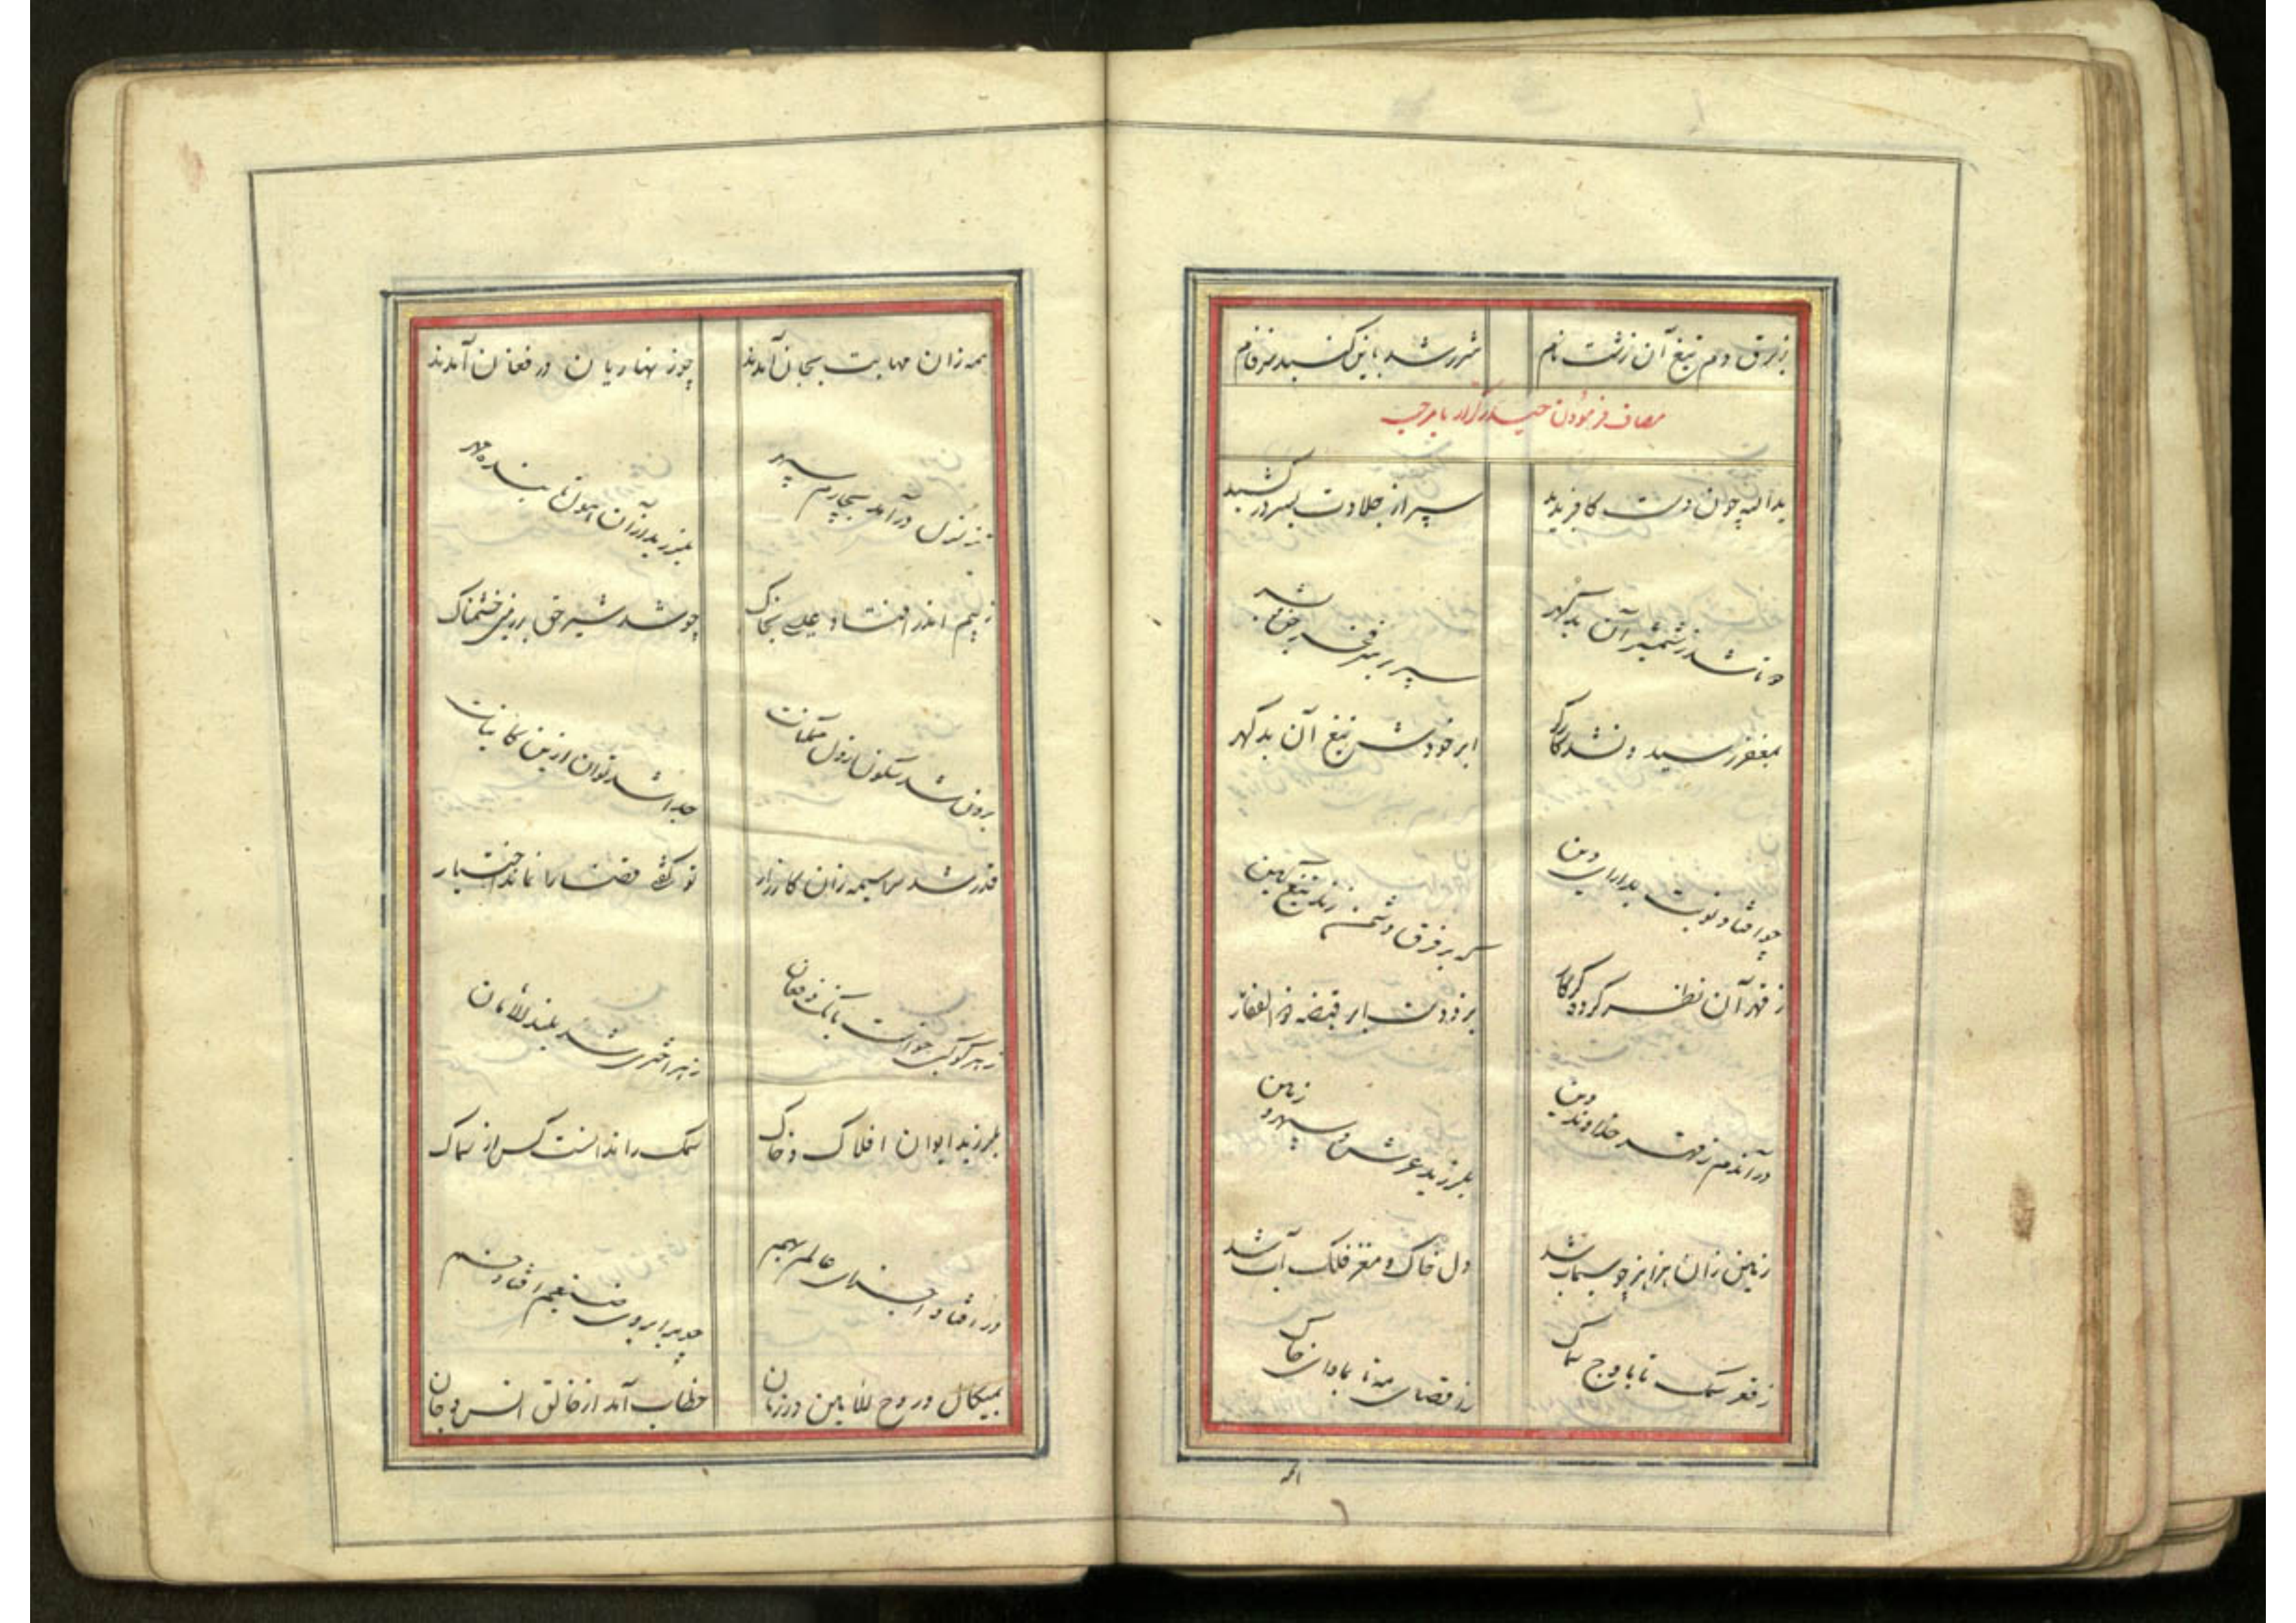 ز برق دم تیغ آن زشت نام شرر شد باین کنبد سبز فام
مصاف فرمودن حیدر کرار با مرحب
ید اله چو آن دست کافر بدید سپر از جلادت بسر در کشید
دو تا شد ز شمشیر آن بد گهر سپر بر سر
بمغفر رسید و نشد کارگر ابر خود شد تیغ آن بد گهر
چو افتاد نوبت بدارای دین که بر فرق دشمن زند تیغ کین
ز قهر آن نظر کرده کردگار بزد دست بر قبضه ذوالفقار
در آندم ز قهر خداوند دین بلرزید عرش و سپهر و زمین
زمین زان هزاهز چو سیماب شد دل خاک و مغز فلک آب شد
ز قعر سمک تا باوج سماک ز اقصای مه تا بماوای خاک
همه زان مهابت بجان آمدند چو زنهاریان در فغان آمدند
تزلزل در آمد بچارم سپهر بلرزید از آن هول تابنده مهر
ز بیم اندر افتاد عیسی بخاک چو شد شیر حق بر زمین خشمناک
برون شد سکون از دل ممکنات جدا شد توان از تن کاینات
قدر شد سراسیمه زان کارزار تو گفتی قضا را نماند اختیار
ز هر کوکبی خواست بانک و فغان ز هر اختری شد بلند الامان
بلرزید ایوان افلاک و خاک سمک را ندانست کس از سماک
در افتاد اجزای عالم بهم چو بر ابروی ضیغم افتاد خم
بمیکال و روح الامین در زمان خطاب آمد از خالق انس و جان